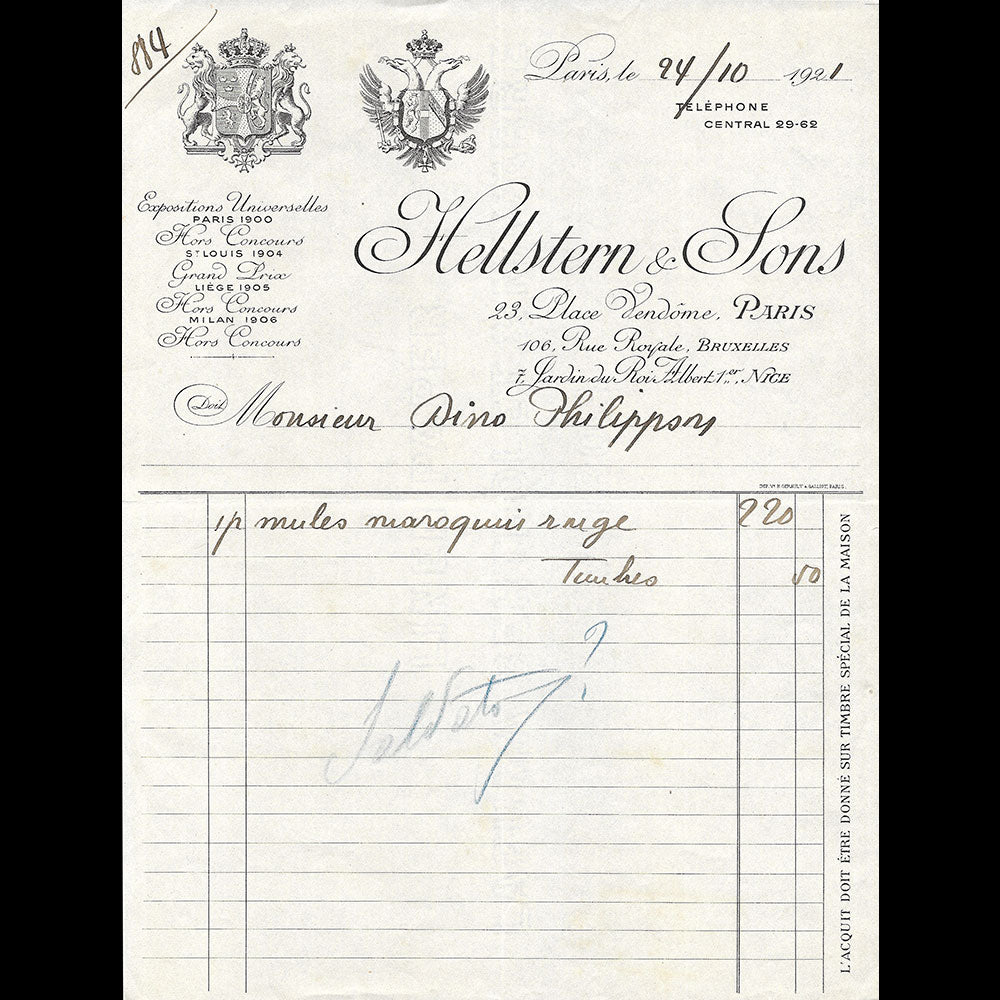 884
Paris, le 24/10 1921
TÉLÉPHONE
CENTRAL 29-62
Expositions Universelles
PARIS 1900
Hors Concours
ST LOUIS 1904
Grand Prix
LIÈGE 1905
Hors Concours
MILAN 1906
Hors Concours
Hellstern & Sons
23, Place Vendôme, PARIS
106, Rue Royale, BRUXELLES
7, Jardin du Roi Albert 1er, NICE
Doit Monsieur Dino Philippson
1 p mules maroquin rouge 220
Timbres 50
Saldato?
L'ACQUIT DOIT ÊTRE DONNÉ SUR TIMBRE SPÉCIAL DE LA MAISON